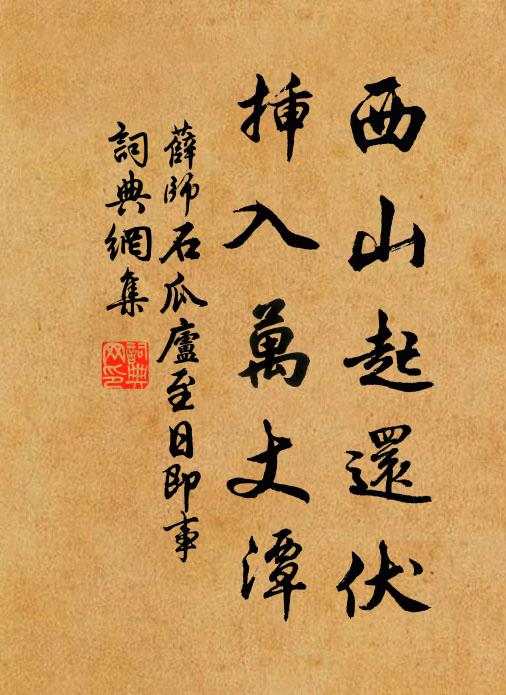 西山起還伏
插入萬丈潭
薛師石瓜廬至日即事
詞典網集
詞典網印